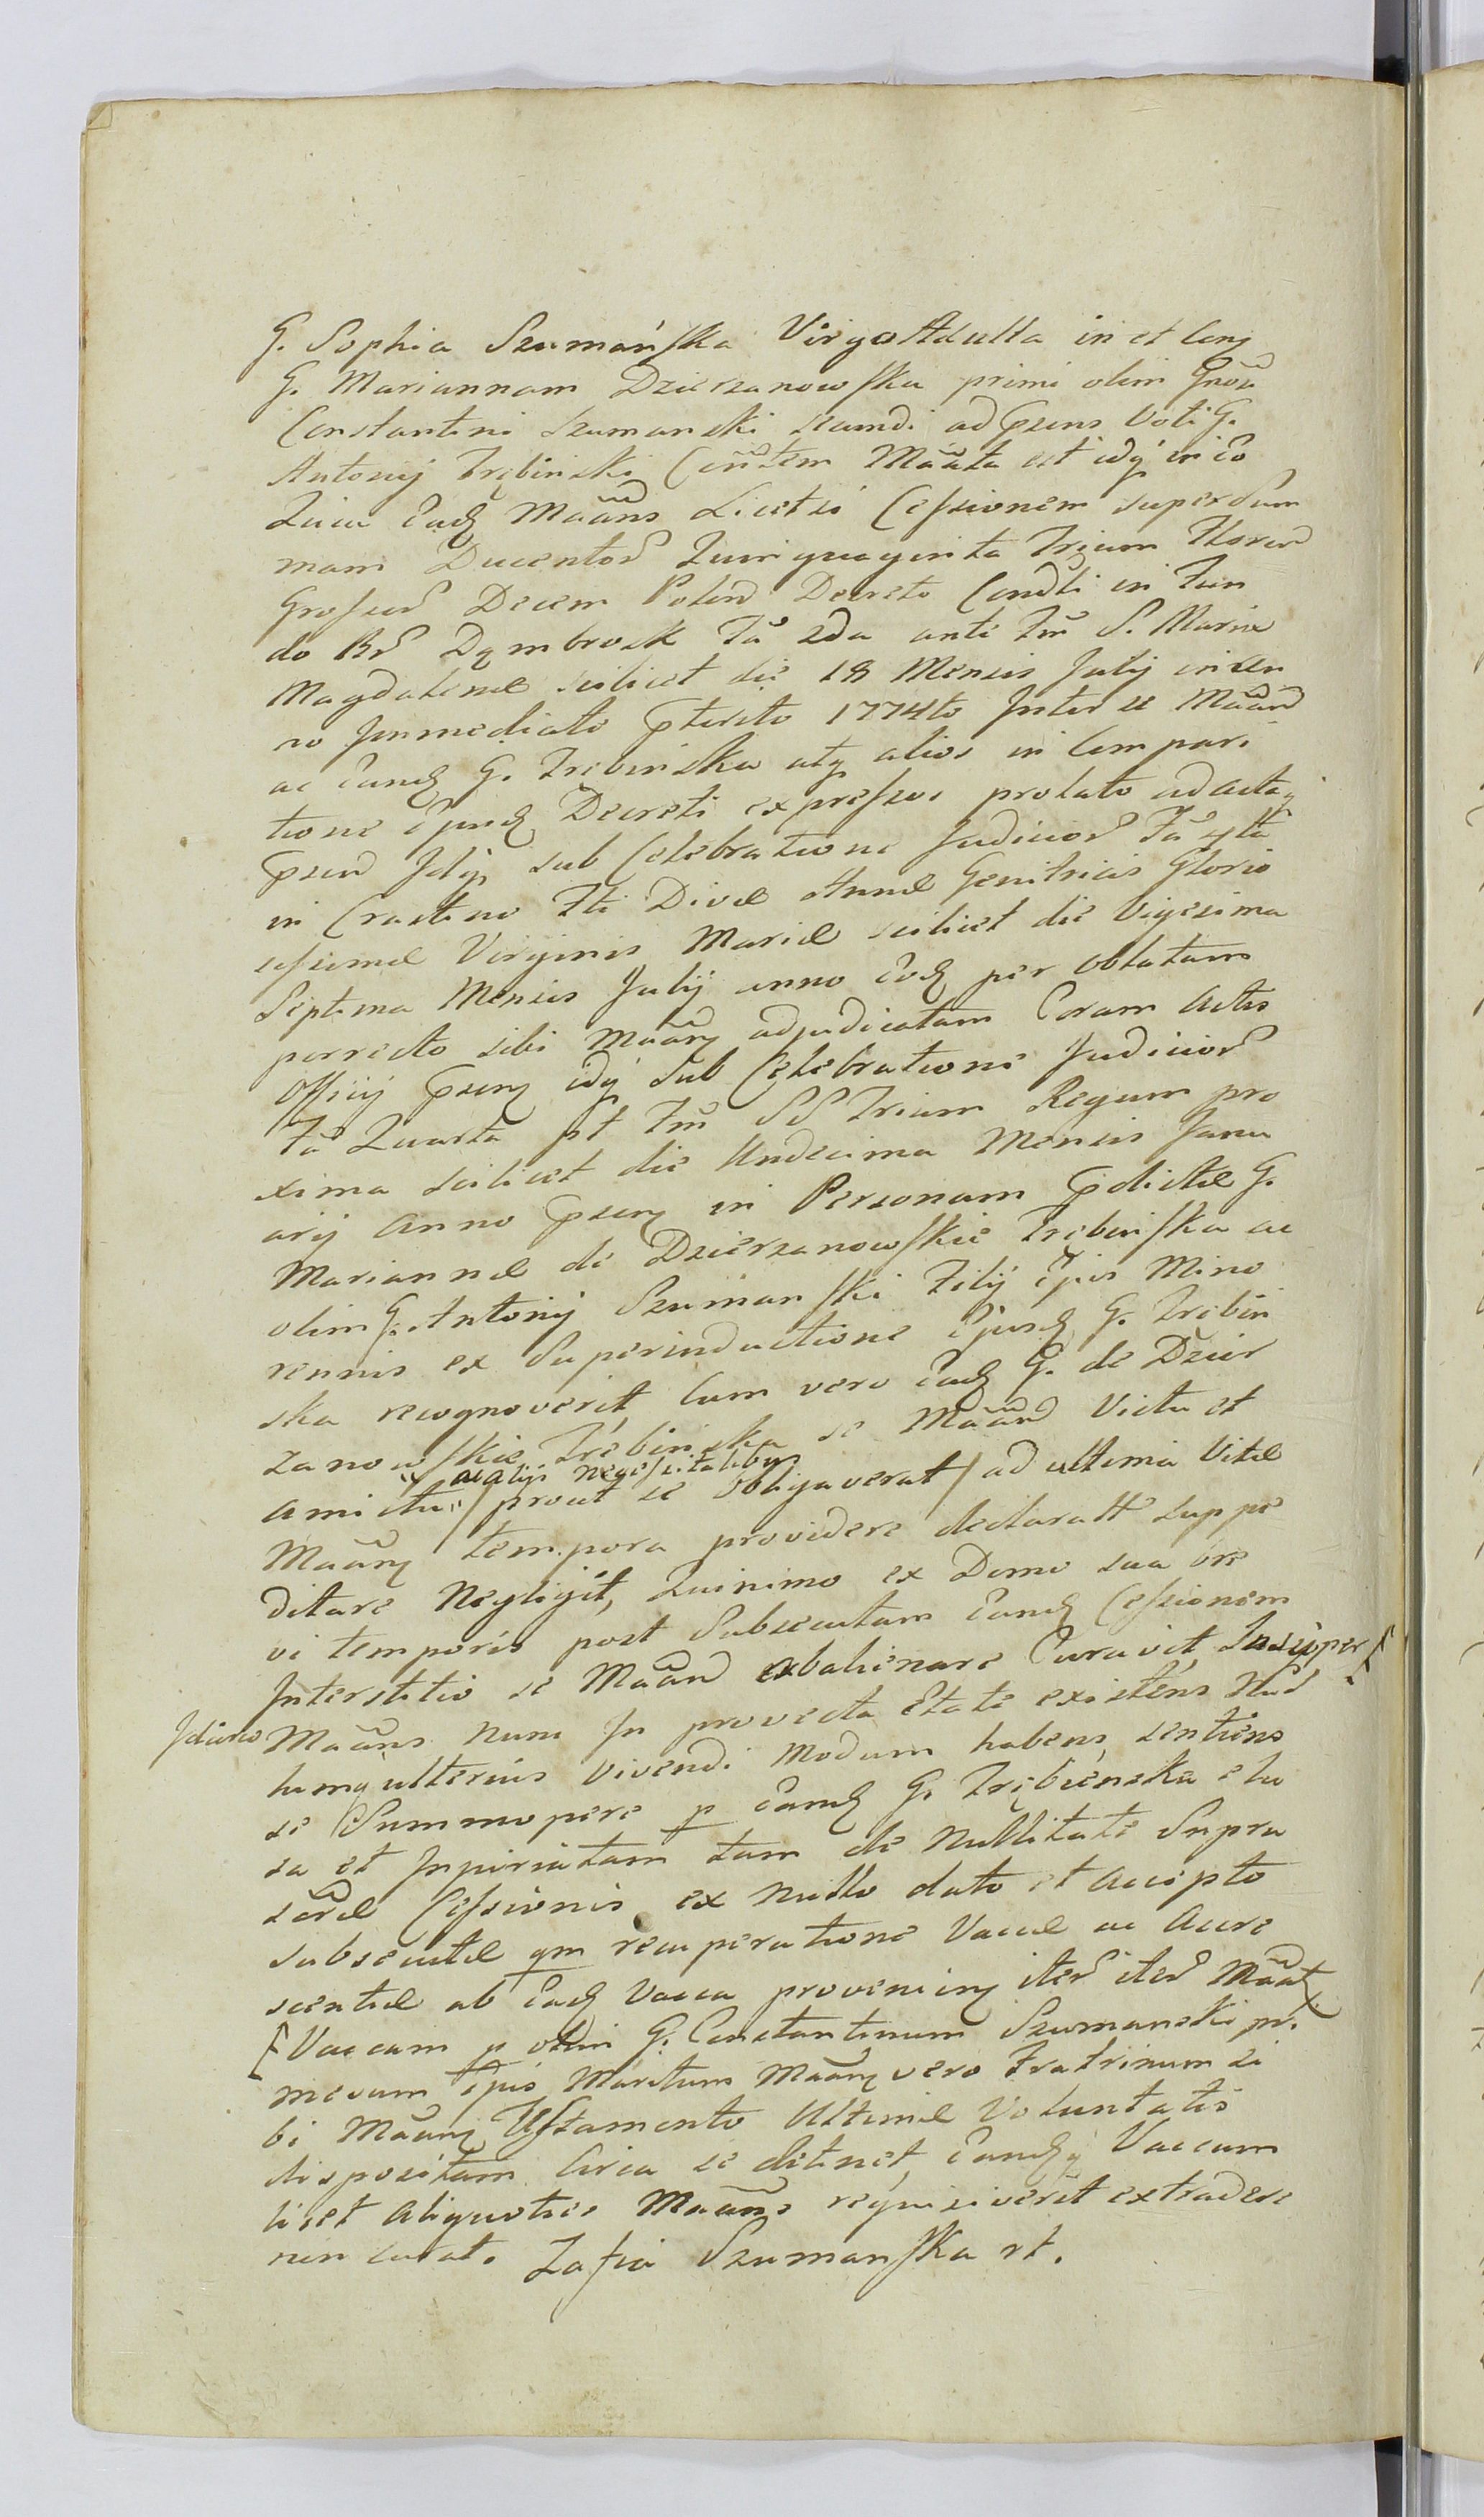 G. Sophia Szumańska Virgo Adulta in et Cong
G. Mariannam Dzierzanowska primi olim Gnõsi
Constantini Szumanski secundi ad Psens Voti G.
Antonij Trębinski Cõñtem Mãñta est idq in eo
Quia Eadq Mãñs Licet si Cessionem super Sum
mam Ducentor Quinquaginta Trium Floren
Grossor Decem Polon Decreto Condti in Fun
do Br Dąmbrosk Fã 2da ante Fm̃ S. Mariæ
Magdalenæ scilicet die 18 Mensis Julij in An
no Immediate Pterito 1774to Inter se Mãñd
ac Eandq G. Trębinska atq alios in Compari
tione Ejusdq Decreti expressos prolato ad acta
Psen Idq sub Celebratione Judicior Fã 4ta
in Crastino Fti Divæ Annæ Genitricis Glorio
sissimæ Virginis Mariæ scilicet die Vigesima
Septima Mensis Julij anno Eodq per oblatam
porrecto sibi Mãñq adjudicatam Coram Actis
Officij Psenq idq Sub Celebratione Judicior
Fã Quarta pt Fm̃ SS Trium Regum pro
xima scilicet die Undecima Mensis Janu
arij Anno Psenq in Personam Pdictæ G.
Mariannæ de Dzierzanowskie Trębinska ac
olim G. Antonij Szumanski Filij Ejus Mino
rennis ex Superinductione Ejusdq G. Trębin
ska recognoverit, Cum vero Eadq G. de Dzier
zanowskie Trębinska se Mãñd Victu et
ac alijs necessitatibq
amictu " / prout se obligaverat / ad ultima Vitæ
Mãñq tempora providere declaratt suppe
ditare Negligit, Quinimo ex Domo sua bre
vi temporis post Subsecutam Eandq Cessionem
Interstitio se Mãñd abalienare Curavit, Insuper [
Ideirco Mãñs nunc In provecta Etate existens Nul
lumq ulterius vivendi Modum habens, sentiens
se Summopere p Eandq G. Trębienska elu
sa et Injuriatam tam de Nullitate Supra
scræ Cessionis ex nullo dato et accepto
subsecutæ qm recuperatione Vaccæ ac Accre
scentiæ ab Eadq Vacca provenienq iter iter Mãñt
[ Vaccam p olim G. Constantinum Szumanski pri
mevum Ejus Maritum Mãñq vero Fratrinum si
bi Mãñq Testamento Ultimæ Voluntatis
dispositam Circa se detinet, Eandqq Vaccam
licet aliquoties Mãñs requisiverit extradere
non curat. Zofia Szumanska rt.